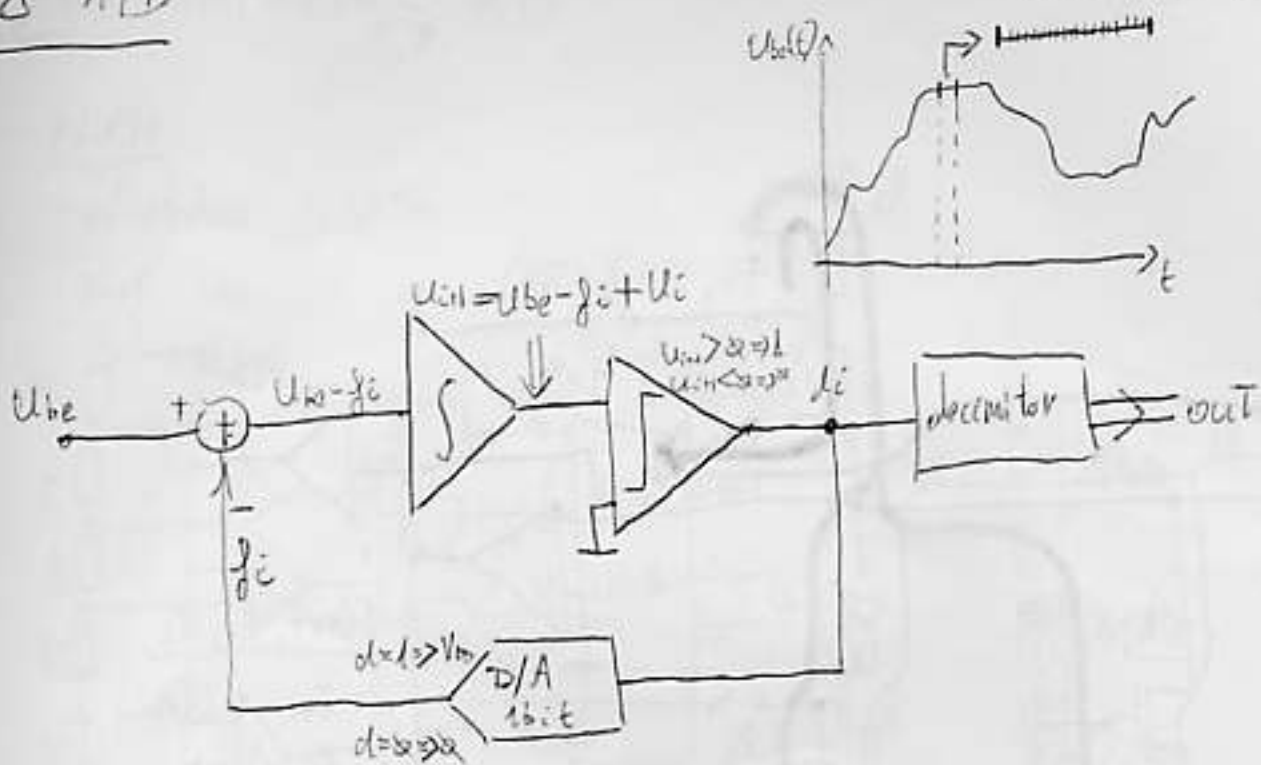 A/D
Ube(t)
t
Ui+1=Ube-fi+Ui
Ube
+
+
Ube-fi
∫
Ui+1>0=>1
Ui+1<0=>0
di
decimitor
OUT
-
fi
d=1=>Vm
D/A
1bit
d=0=>0